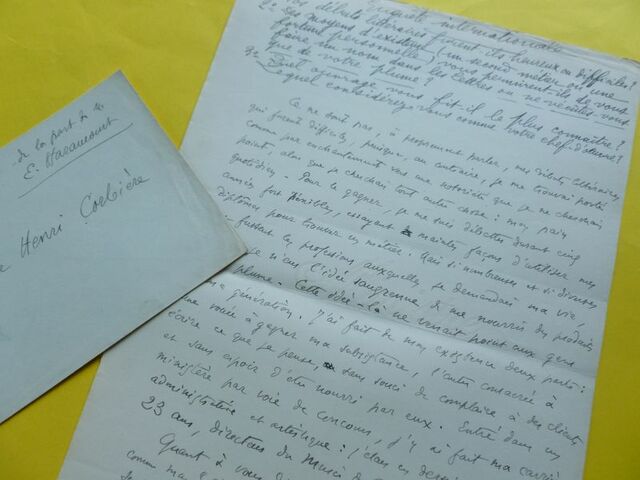 de la part de
E. Haraucourt
Henri Corbière
enquête internationale
Vos débuts littéraires furent-ils heureux ou difficiles?
2º Les moyens d'existence (un second métier ou une
fortune personnelle) vous permirent-ils de vous
faire un nom dans les lettres ou ne vécûtes-vous
que de votre plume?
3º Quel ouvrage vous fit-il le plus connaître?
Lequel considérez-vous comme votre chef-d'œuvre?
Ce ne sont pas, à proprement parler, mes débuts littéraires,
qui furent difficiles, puisque, au contraire, je me trouvai porté
comme par enchantement vers une notoriété que je ne cherchais
point, alors que je cherchais tout autre chose: mon pain
quotidien. Pour le gagner, je me suis débattu durant cinq
années fort pénibles, essayant maintes façons d'utiliser mes
diplômes pour trouver un métier. Mais si nombreuses et si diverses
fussent les professions auxquelles je demandai ma vie,
je n'eus l'idée saugrenue de me nourrir des produits
plume. Cette idée-là ne venait point aux gens
ma génération. J'ai fait de mon existence deux parts:
une vouée à gagner ma subsistance, l'autre consacrée à
écrire ce que je pense, sans souci de complaire à des clients
et sans espoir d'être nourri par eux. Entré dans un
ministère par voie de concours, j'y ai fait ma carrière
administrative et artistique:
23 ans, directeur du Musée de
Quant à vous
comme ma